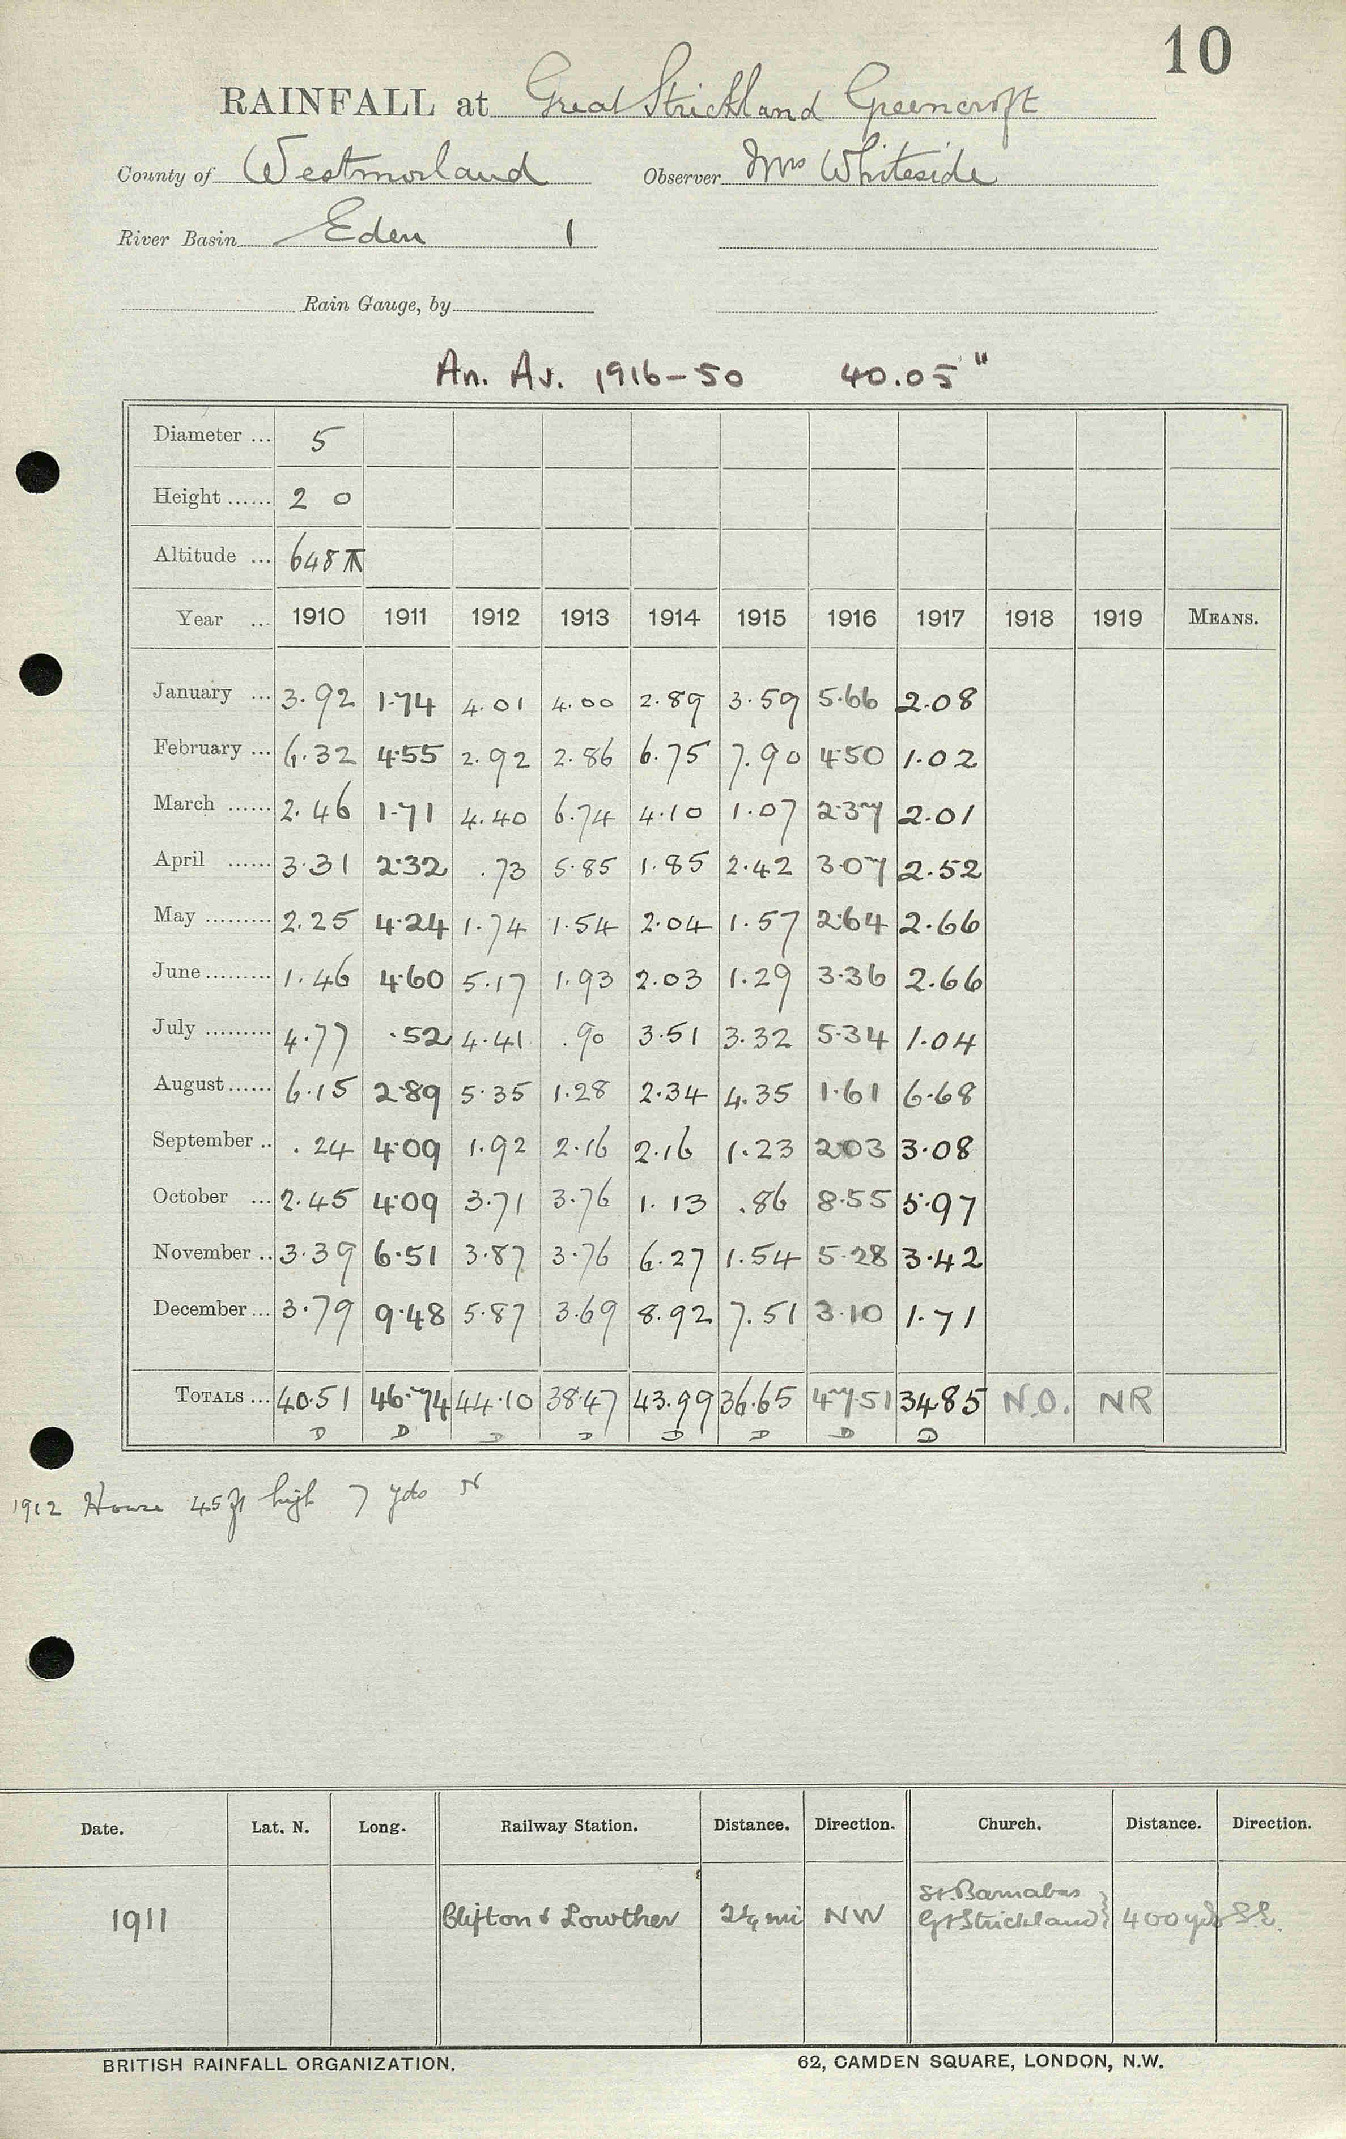 10
RAINFALL at Great Strickland Greencroft
County of Westmorland Observer Mrs Whiteside
River Basin Eden 1
Rain Gauge, by
An. Av. 1916-50 40.05"
Diameter ... 5
Height ...... 2 0
Altitude ... 648
Year ... 1910 1911 1912 1913 1914 1915 1916 1917 1918 1919 MEANS.
January ... 3.92 1.74 4.01 4.00 2.89 3.59 5.66 2.08
February ... 6.32 4.55 2.92 2.86 6.75 7.90 4.50 1.02
March ...... 2.46 1.71 4.40 6.74 4.10 1.07 2.37 2.01
April ...... 3.31 2.32 .73 5.85 1.85 2.42 3.07 2.52
May ......... 2.25 4.24 1.74 1.54 2.04 1.57 2.64 2.66
June ......... 1.46 4.60 5.17 1.93 2.03 1.29 3.36 2.66
July ......... 4.77 .52 4.41 .90 3.51 3.32 5.34 1.04
August ...... 6.15 2.89 5.35 1.28 2.34 4.35 1.61 6.68
September .. .24 4.09 1.92 2.16 2.16 1.23 2.03 3.08
October ... 2.45 4.09 3.71 3.76 1.13 .86 8.55 5.97
November .. 3.39 6.51 3.87 3.76 6.27 1.54 5.28 3.42
December ... 3.79 9.48 5.87 3.69 8.92 7.51 3.10 1.71
TOTALS ... 40.51 46.74 44.10 38.47 43.99 36.65 47.51 34.85 N.O. NR
D D D D D D D D
1912 House 45 ft high 7 yds N
Date. Lat. N. Long. Railway Station. Distance. Direction. Church. Distance. Direction.
1911 Clifton & Lowther 2¼ mi NW St. Barnabas Gt Strickland} 400 yds S.E.
BRITISH RAINFALL ORGANIZATION. 62, CAMDEN SQUARE, LONDON, N.W.